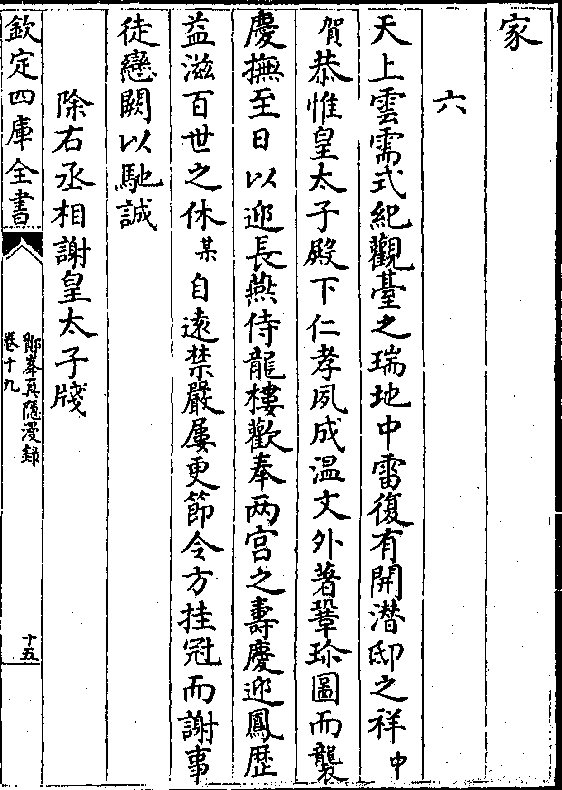 家
六
天上雲需式紀觀臺之瑞地中雷復有開潛邸之祥中
賀恭惟皇太子殿下仁孝夙成温文外著鞏珍圖而襲
慶撫至日以迎長燕侍龍樓歡奉两宫之壽慶迎鳳歴
益滋百世之休某自遠禁嚴屢更節令方挂冠而謝事
徒戀闕以馳誠
除右丞相謝皇太子牋
欽定四庫全書
鄮峯真隱漫録
卷十九
十五